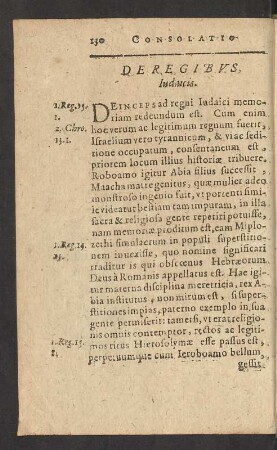 130 CONSOLATIO
DE REGIBVS,
Iudaeis.
1. Reg. 15.
1.
2. Chro.
13. 1.
DEINCEPS ad regni Iudaici memo-
riam redeundum est. Cum enim
hoc verum ac legitimum regnum fuerit,
Israelium vero tyrannicum, & vi ac sedi-
tione occupatum, consentaneum est,
priorem locum illius historiæ tribuere.
Roboamo igitur Abia filius successit,
Maacha matre genitus, quæ mulier adeo
monstroso ingenio fuit, vt portenti simi-
le videatur bestiam tam impuram, in illa
sacra & religiosa gente reperiri potuisse,
nam memoriæ proditum est, eam Miplo-
1. Reg. 14.
23.
zethi simulacrum in populi superstitio-
nem inuexisse, quo nomine significari
traditur is qui obscœnus Hebræorum
Deus à Romanis appellatus est. Hac igi-
tur materna disciplina meretricia, rex A-
bia institutus, non mirum est, si super-
stitiones impias, paterno exemplo in sua
gente permiserit: tametsi, vt erat religio-
nis omnis contemptor, rectos ac legiti-
1. Reg. 15.
mos ritus Hierosolymæ esse passus est,
perpetuumque cum Ieroboamo bellum,
gessit.